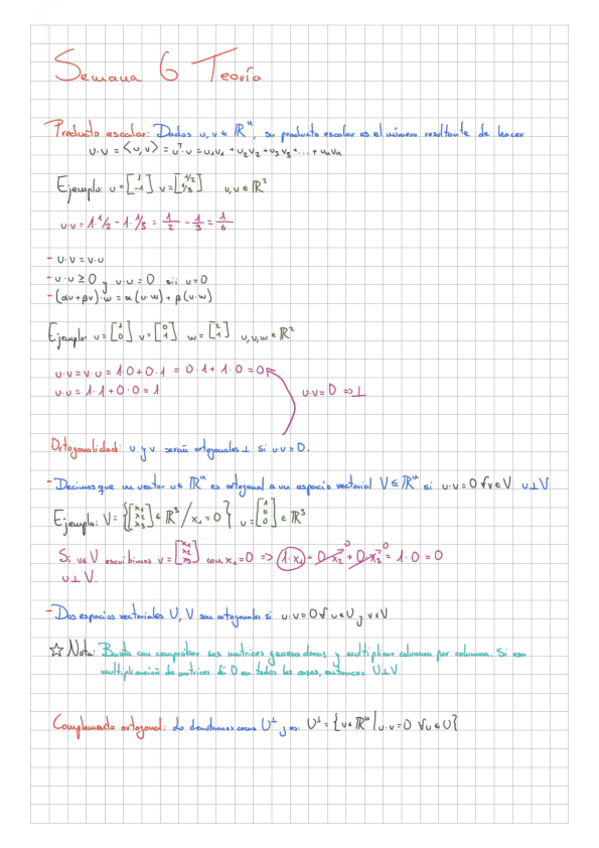 Semana 6 Teoría
Producto escalar: Dados u, v ∈ ℝⁿ, su producto escalar es el número resultante de hacer
u·v = <u,v> = uᵀ·v = u₁v₁ + u₂v₂ + u₃v₃ + ... + uₙvₙ
Ejemplo: u = [1 -1] v = [1/2 1/3] u,v ∈ ℝ²
u·v = 1·1/2 - 1·1/3 = 1/2 - 1/3 = 1/6
- u·v = v·u
- u·u ≥ 0 y u·u = 0 sii u=0
- (αu+βv)·w = α(u·w) + β(v·w)
Ejemplo: u = [1 0] v = [0 1] w = [2 1] u,v,w ∈ ℝ²
u·v = v·u = 1·0 + 0·1 = 0·1 + 1·0 = 0
u·u = 1·1 + 0·0 = 1 u·v = 0 ⇒ ⊥
Ortogonalidad: u y v serán ortogonales ⊥ si u·v = 0.
- Decimos que un vector u ∈ ℝⁿ es ortogonal a un espacio vectorial V ⊆ ℝⁿ si u·v = 0 ∀v ∈ V u ⊥ V
Ejemplo: V = {[x₁ x₂ x₃] ∈ ℝ³ / x₁ = 0} u = [1 0 0] ∈ ℝ³
Si v ∈ V escribimos v = [x₁ x₂ x₃] con x₁ = 0 ⇒ 1·x₁ + 0·x₂ + 0·x₃ = 1·0 = 0
u ⊥ V.
- Dos espacios vectoriales U, V son ortogonales si u·v = 0 ∀ u ∈ U y v ∈ V
☆ Nota: Basta con comprobar sus matrices generadoras y multiplicar columna por columna. Si esa
multiplicación de matrices da 0 en todos los casos, entonces U ⊥ V
Complemento ortogonal: Lo denotamos como U⊥ y es: U⊥ = {v ∈ ℝⁿ | u·v = 0 ∀u ∈ U}